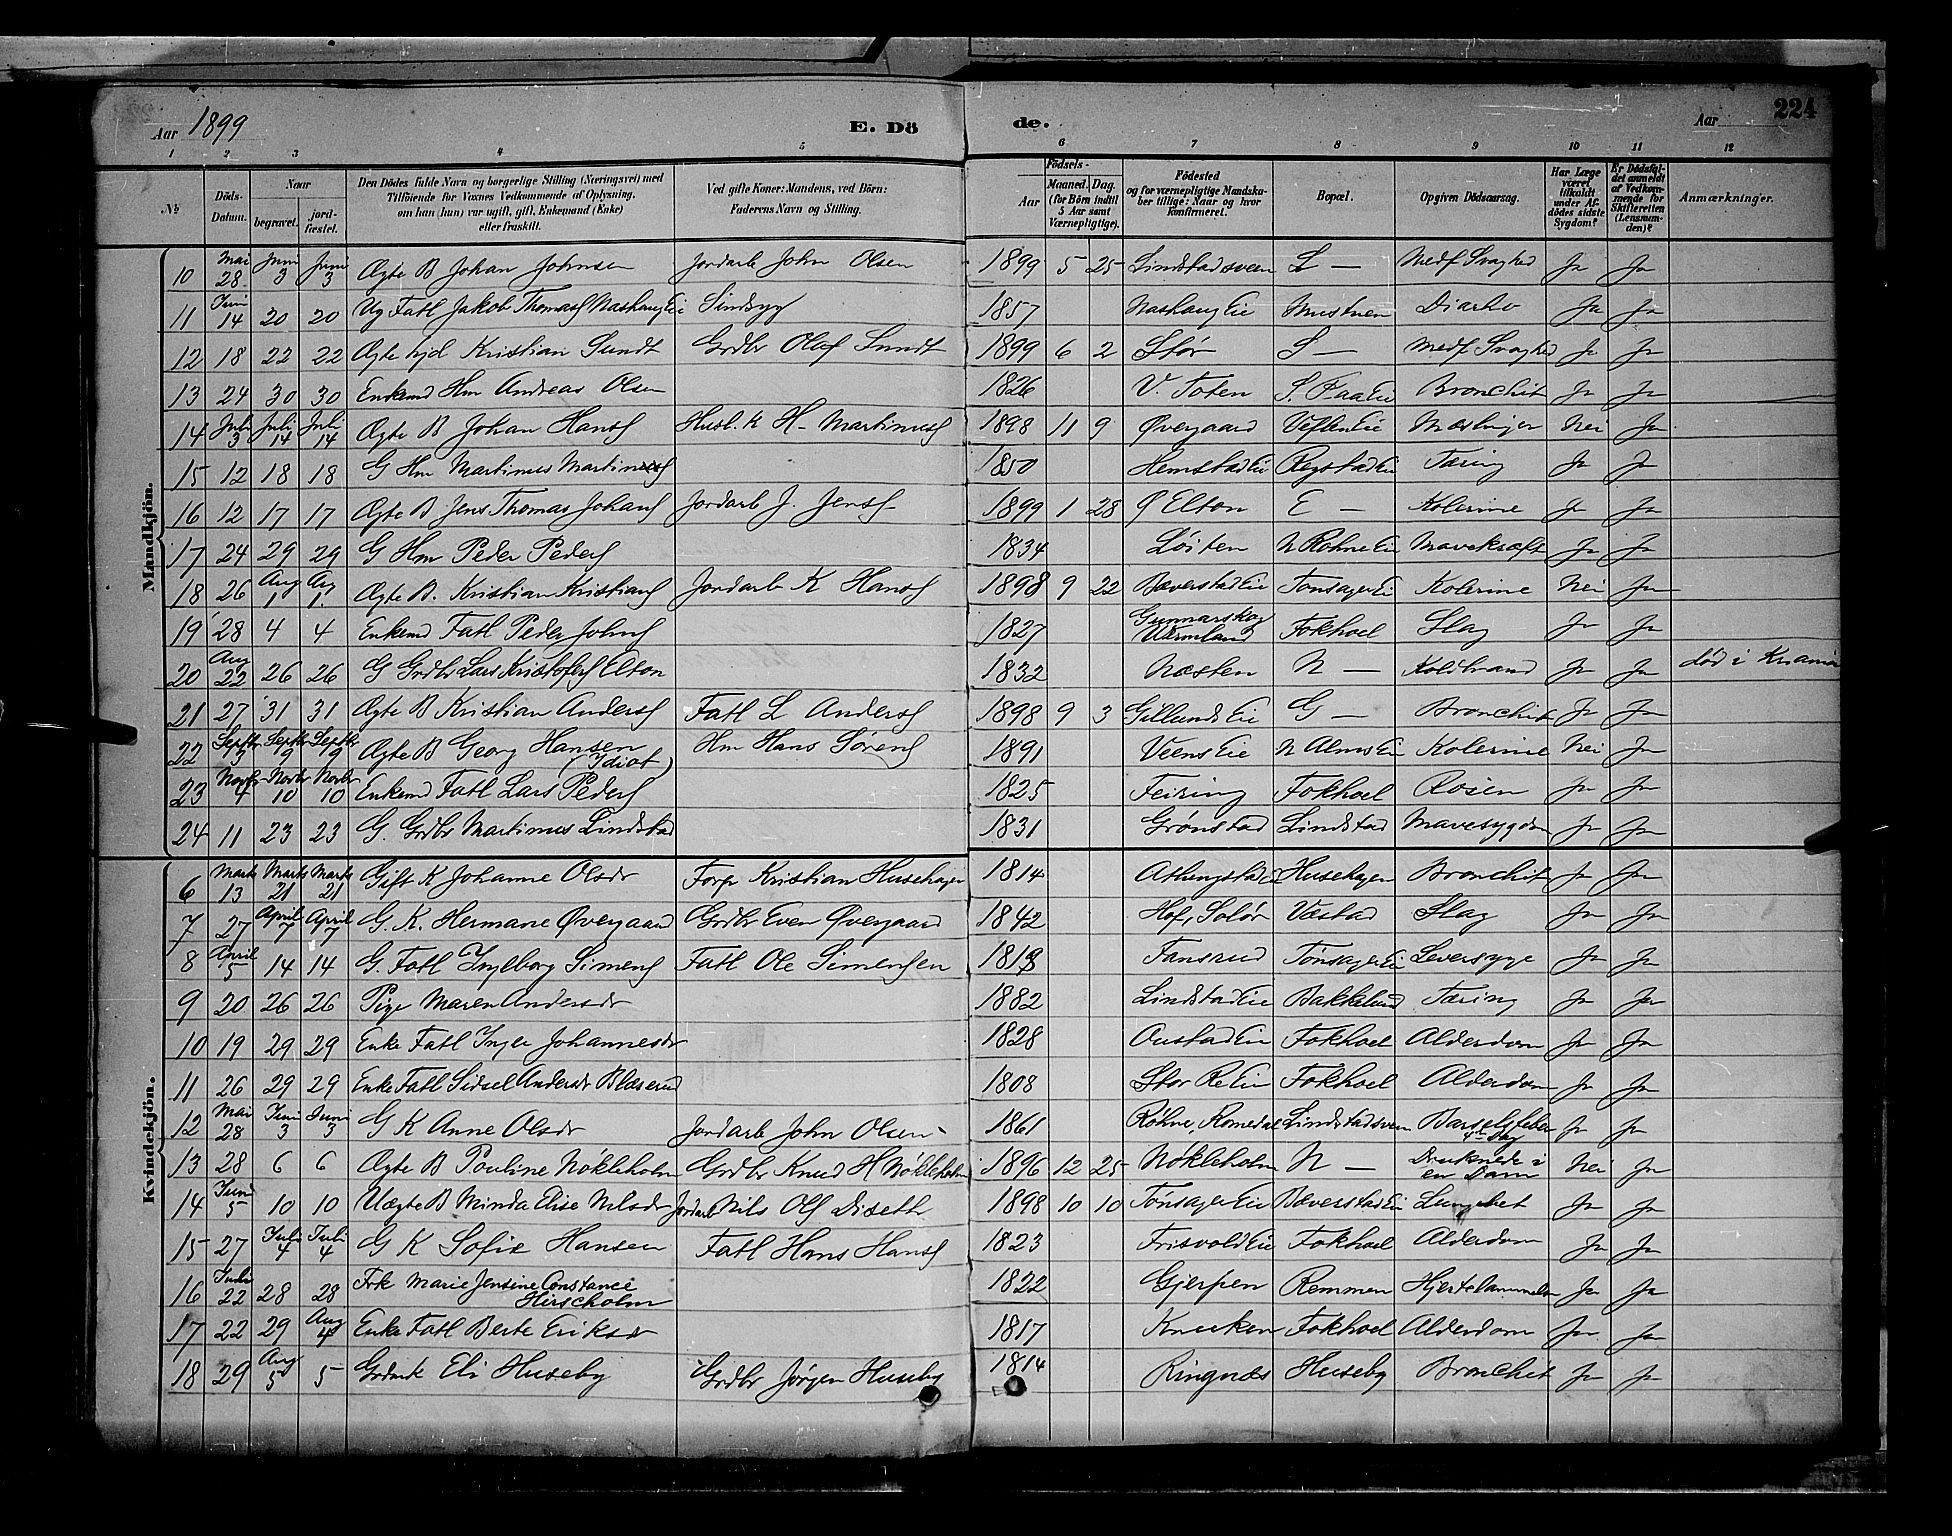 Aar 1899
E. Dö
de.
Aar
224
1 2 3 4 5 6 7 8 9 10 11 12
No
Döds-Datum.
Naar
begravet.
jord-fæstet.
Den Dödes fulde Navn og borgerlige Stilling (Næringsvei) med
Tilföiende for Voxnes Vedkommende af Oplysning,
om han (hun) var ugift, gift, Enkemand (Enke)
eller fraskilt.
Ved gifte Koner: Mandens, ved Börn:
Faderens Navn og Stilling.
Födsels-
Aar
Maaned. Dag.
(for Börn indtil
5 Aar samt
Værnepligtige).
Födested
og for værnepligtige Mandska-
ber tillige: Naar og hvor
konfirmeret.
Bopæl.
Opgiven Dödsaarsag.
Har Læge
været
tilkaldt
under Af-
dödes sidste
Sygdom?
Er Dödsfal-
det anmeldt
af Vedkom-
mende for
Skifteretten
(Lensman-
den)?
Anmærkninger.
Mandkjön.
10 Mai 28 Juni 3 Juni 3 Ægte B Johan Johnsen Jordarb John Olsen 1899 5 25 Lindstadsveen L — Medf Svaghed Ja Ja
11 Juni 14 20 20 Ug Fatl Jakob Thomass Nashaug Eie Sindsyg 1857 Nashaug Eie Diarho Ja Ja
12 18 22 22 Ægte Kristian Sundt Grdbr Olaf Sundt 1899 6 2 S — Medf Svaghed Ja Ja
13 24 30 30 Enkemd Hm Andreas Olsen 1826 V. Toten Bronchit Ja Ja
14 Juli 3 Juli 14 Juli 14 Ægte B Johan Hansf Husl. K H- Martinusf 1898 11 9 Øvergaard Meslinger Nei Ja
15 12 18 18 G Hm Martinus Martinusf 1850 Hemstad Eie Tæring Ja Ja
16 12 17 17 Ægte B Jens Thomas Johansf Jordarb J. Jensf 1899 1 28 Ø Elton E — Kolerine Ja Ja
17 24 29 29 G Hm Peder Pedersf 1834 Løiten N Røhne Eie Mavekræft Ja Ja
18 26 Aug 1 Aug 1. Ægte B. Kristian Kristiansf Jordarb K Hansf 1898 9 22 Bæverstad Eie Tønsager Ei Kolerine Nei Ja
19 28 4 4 Enkemd Fatl Peder Johnsf 1827 Gunnarskog Værmland Fokhoel Slag Ja Ja
20 Aug 22 26 26 G Grdbr Lars Kristofersf Elton 1832 Næsten N — Koldbrand Ja Ja død i Krania
21 27 31 31 Ægte B Kristian Andersf Fatl L Andersf 1898 9 3 Gillunds Eie G — Bronchit Ja Ja
22 Septbr 3 Septbr 9 Septbr 9 Ægte B Georg Hansen (Idiot) Hm Hans Sørensf 1891 Veens Eie N Alms Ei Kolerine Nei Ja
23 Novbr 4 Novbr 10 Novbr 10 Enkemd Fatl Lars Pedersf 1825 Feiring Fokhoel Rosen Ja Ja
24 11 23 23 G. Grdbr Martinus Lindstad 1831 Grønstad Lindstad Mavesygdom Ja Ja
Kvindekjön.
6 Marts 13 Marts 21 Marts 21 Gift K Johanne Olsdr Forp Kristian Husehagen 1814 Husehagen Bronchit Ja Ja
7 27 April 7 April 7 G. K. Hermane Øvergaard Grdbr Even Øvergaard 1842 Hof, Solør Væstad Slag Ja Ja
8 April 5 14 14 G. Fatl Ingeborg Simensf Fatl Ole Simensen 1818 Fansrud Tønsager Ei Leversyge Ja Ja
9 20 26 26 Pige Maren Andersdr 1882 Lindstad Eie Bakkelund Tæring Ja Ja
10 19 29 29 Enke Fatl Inger Johannesdr 1828 Oustad Eie Fokhoel Alderdom Ja Ja
11 26 29 29 Enke Fatl Sidsel Andersdr Blæserud 1808 Stor Re Eie Fokhoel Alderdom Ja Ja
12 Mai 28 Juni 3 Juni 3 G K Anne Olsdr Jordarb John Olsen 1861 Røhne, Romedal Lindstadsveen Barselsfeber 4de Dag Ja Ja
13 28 6 6 Ægte B Pouline Nøkleholm Grdbr Knud H Nøkleholm 1896 12 25 Nøkleholm N — Druknede i en Dam Nei Ja
14 Juni 5 10 10 Uægte B Minda Elise Nilsdr Jordarb Nils Olsf Diseth 1898 10 10 Tønsager Eie Bæverstad Ei Lungebet Ja Ja
15 27 Juli 4 Juli 4 G K Sofie Hansen Fatl Hans Hansf 1823 Frisvold Eie Fokhoel Alderdom Ja Ja
16 Juli 22 28 28 Frk Marie Jensine Constance Hirscholm 1822 Gjerpen Remmen Hjertelammelse Ja Ja
17 22 29 Aug 4 Enke Fatl Berte Eriksdr 1817 Fokhoel Alderdom Ja Ja
18 29 Aug 5 5 Eli Huseby Grdbr Jørgen Huseby 1814 Ringnæs Huseby Bronchit Ja Ja